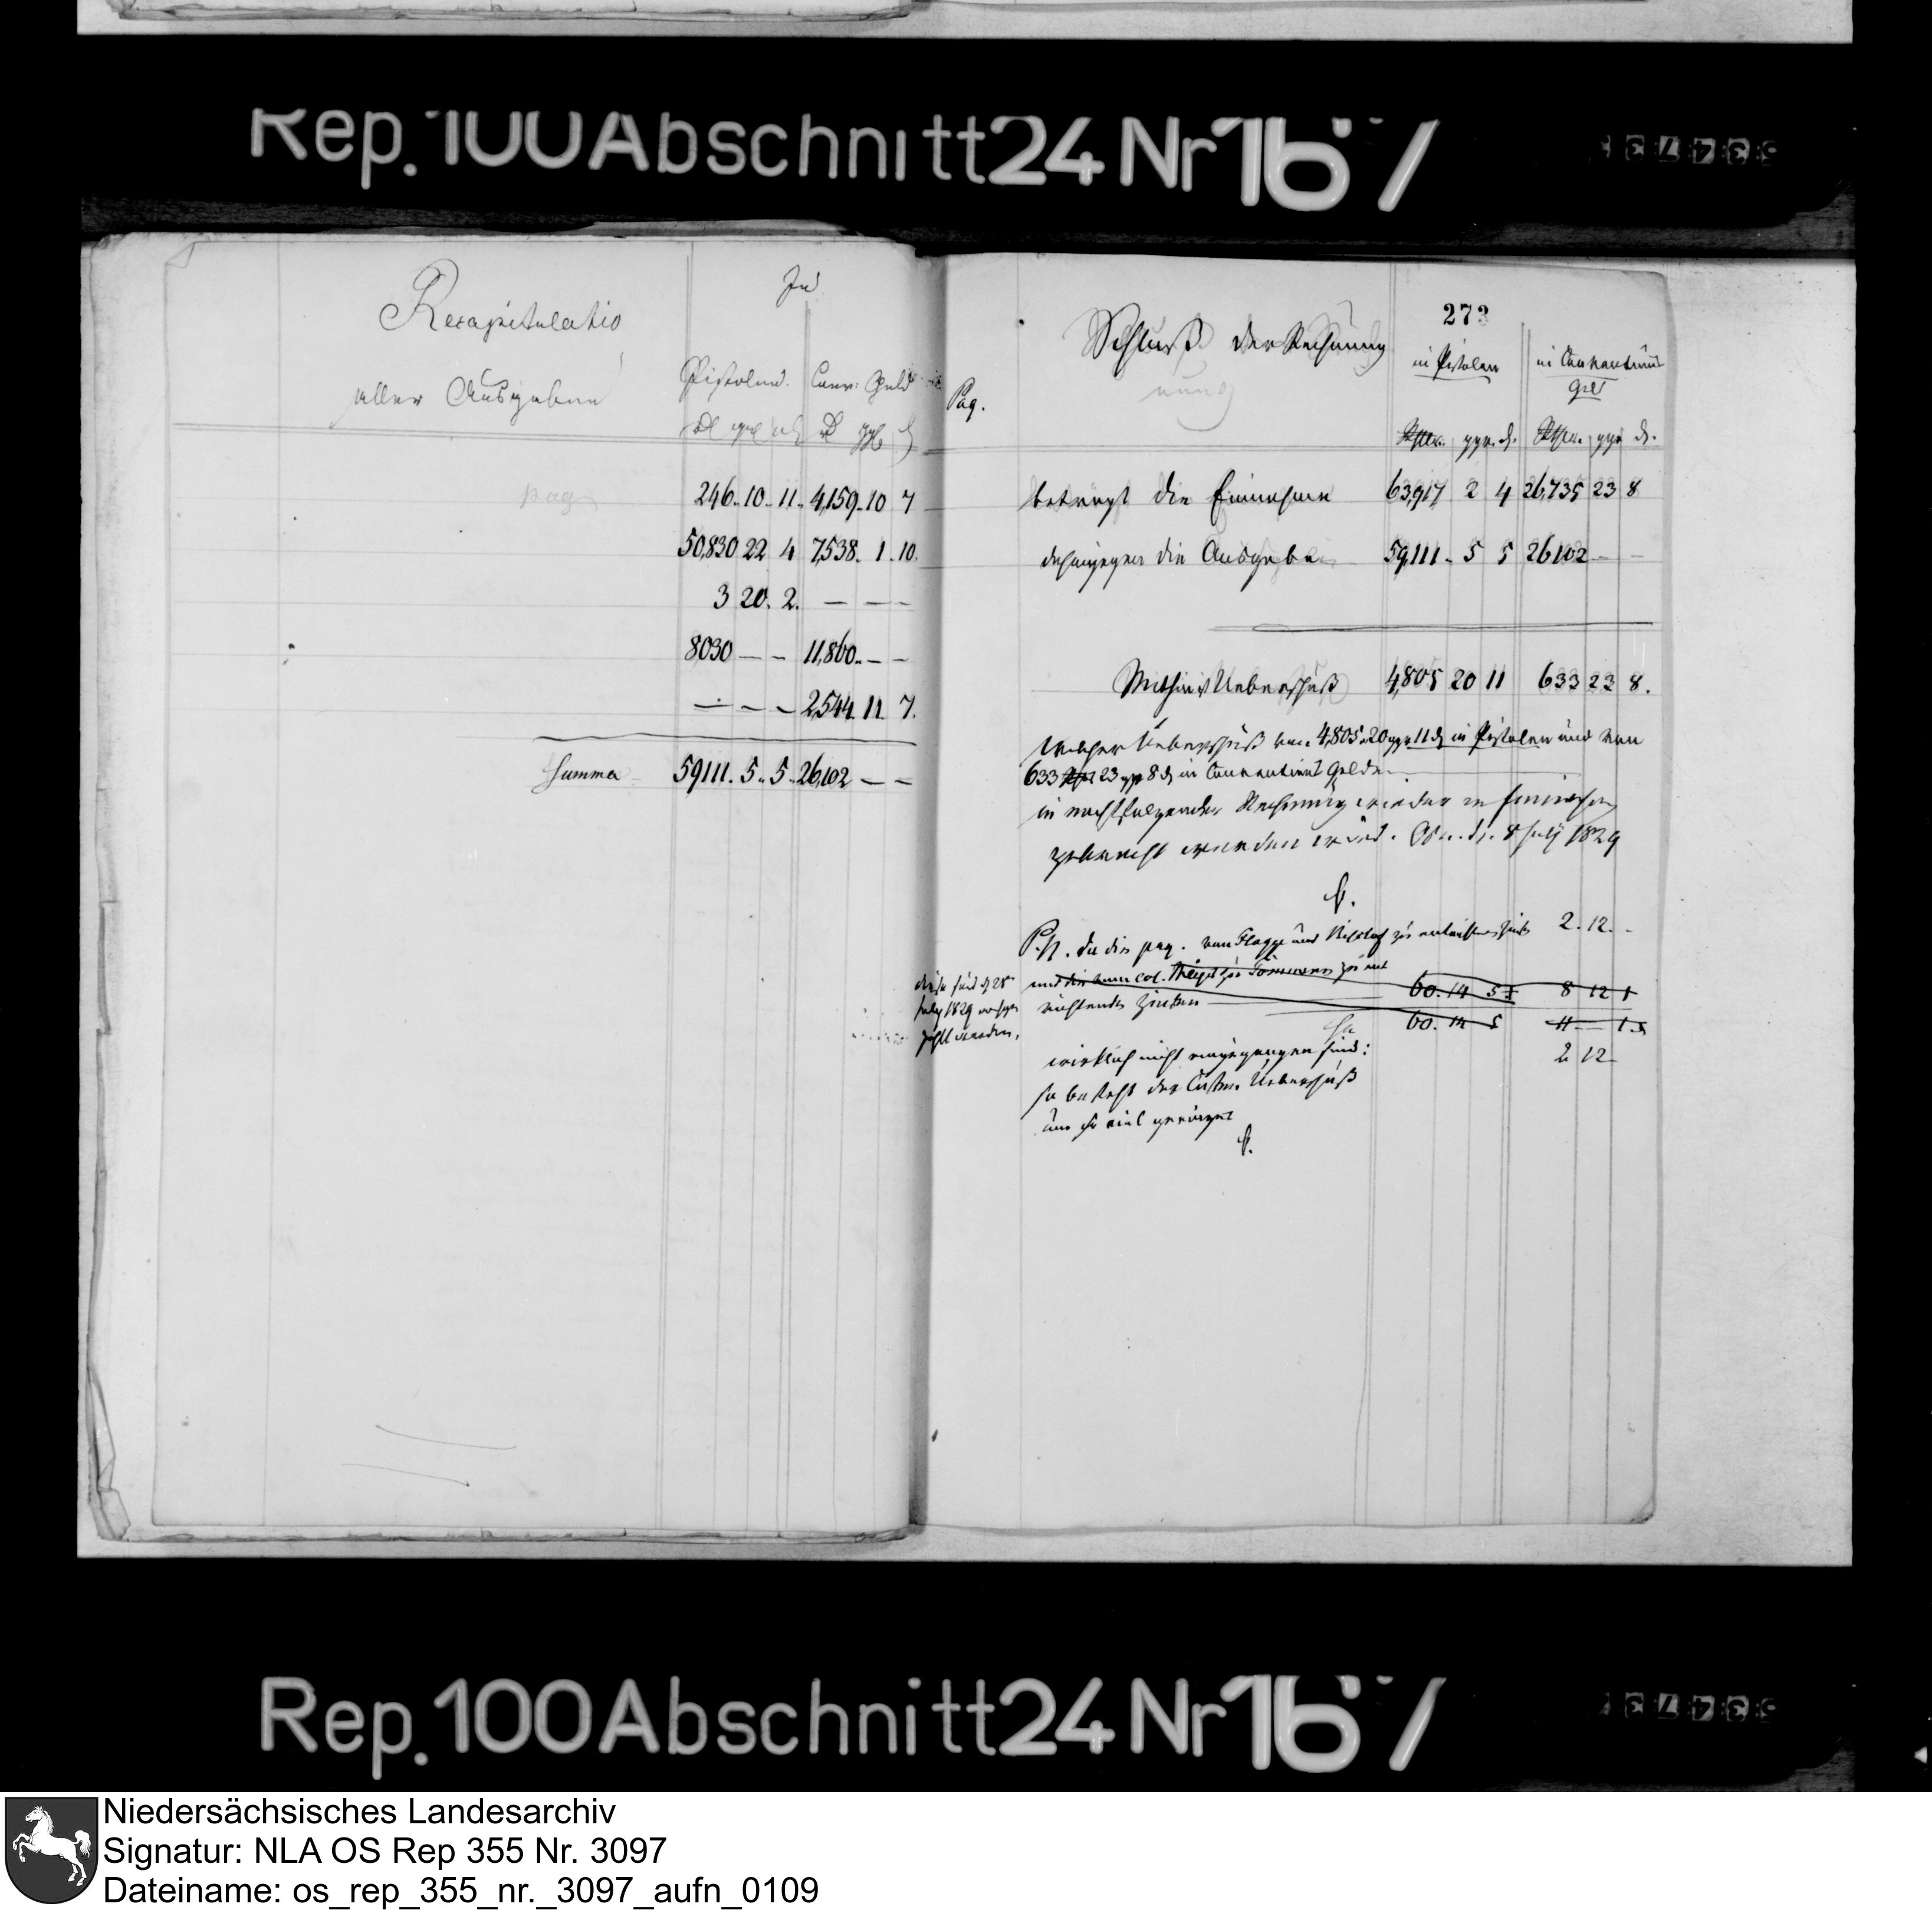 Rep. 100 Abschnitt 24 Nr 167
Recapitulatio
aller Ausgaben
In
Pistolen. Conv: Geld
246.. 10.. 11.. 4,159.. 10 7
50,830 22 4 7,538. 1. 10.
3 20. 2. — — —
8030 — — 11,860.. — —
— — — 2,544. 11. 7.
Summa 59111. 5.. 5.. 26,102 — —
273
Schluß der Rechnung
in Pistolen
in Conventions
Geld
Pag.
Rthlr. ggr. d. Rthlr. ggr d.
beträgt die Einnahme 63,917 2 4 26,735 23 8
dahingegen die Ausgabe 59,111. 5 5 26102 — —
Mithin Ueberschuß 4,805 20 11 633 23 8.
welcher Ueberschuß von 4,805. 20 ggr 11 d in Pistolen und von
633 Rthlr 23 ggr 8 d in Conventions Gelde
in nachfolgender Rechnung wieder in Einnahme
gebracht werden wird. 8 July 1829
P.N. Da die pag. von Flagge und zu entrichtenden Zinsen 2. 12. -
und die vom Col. zu ent
60. 14 5 8 12 1
richtende Zinsen
diese sind d 28
July 1829
gezahlt worden.
60. 14 5 11 — 1.
wirklich nicht eingegangen sind: 2 12
so besteht der Cassen Ueberschuß
um so viel geringer
Rep. 100 Abschnitt 24 Nr 167
Niedersächsisches Landesarchiv
Signatur: NLA OS Rep 355 Nr. 3097
Dateiname: os_rep_355_nr._3097_aufn_0109